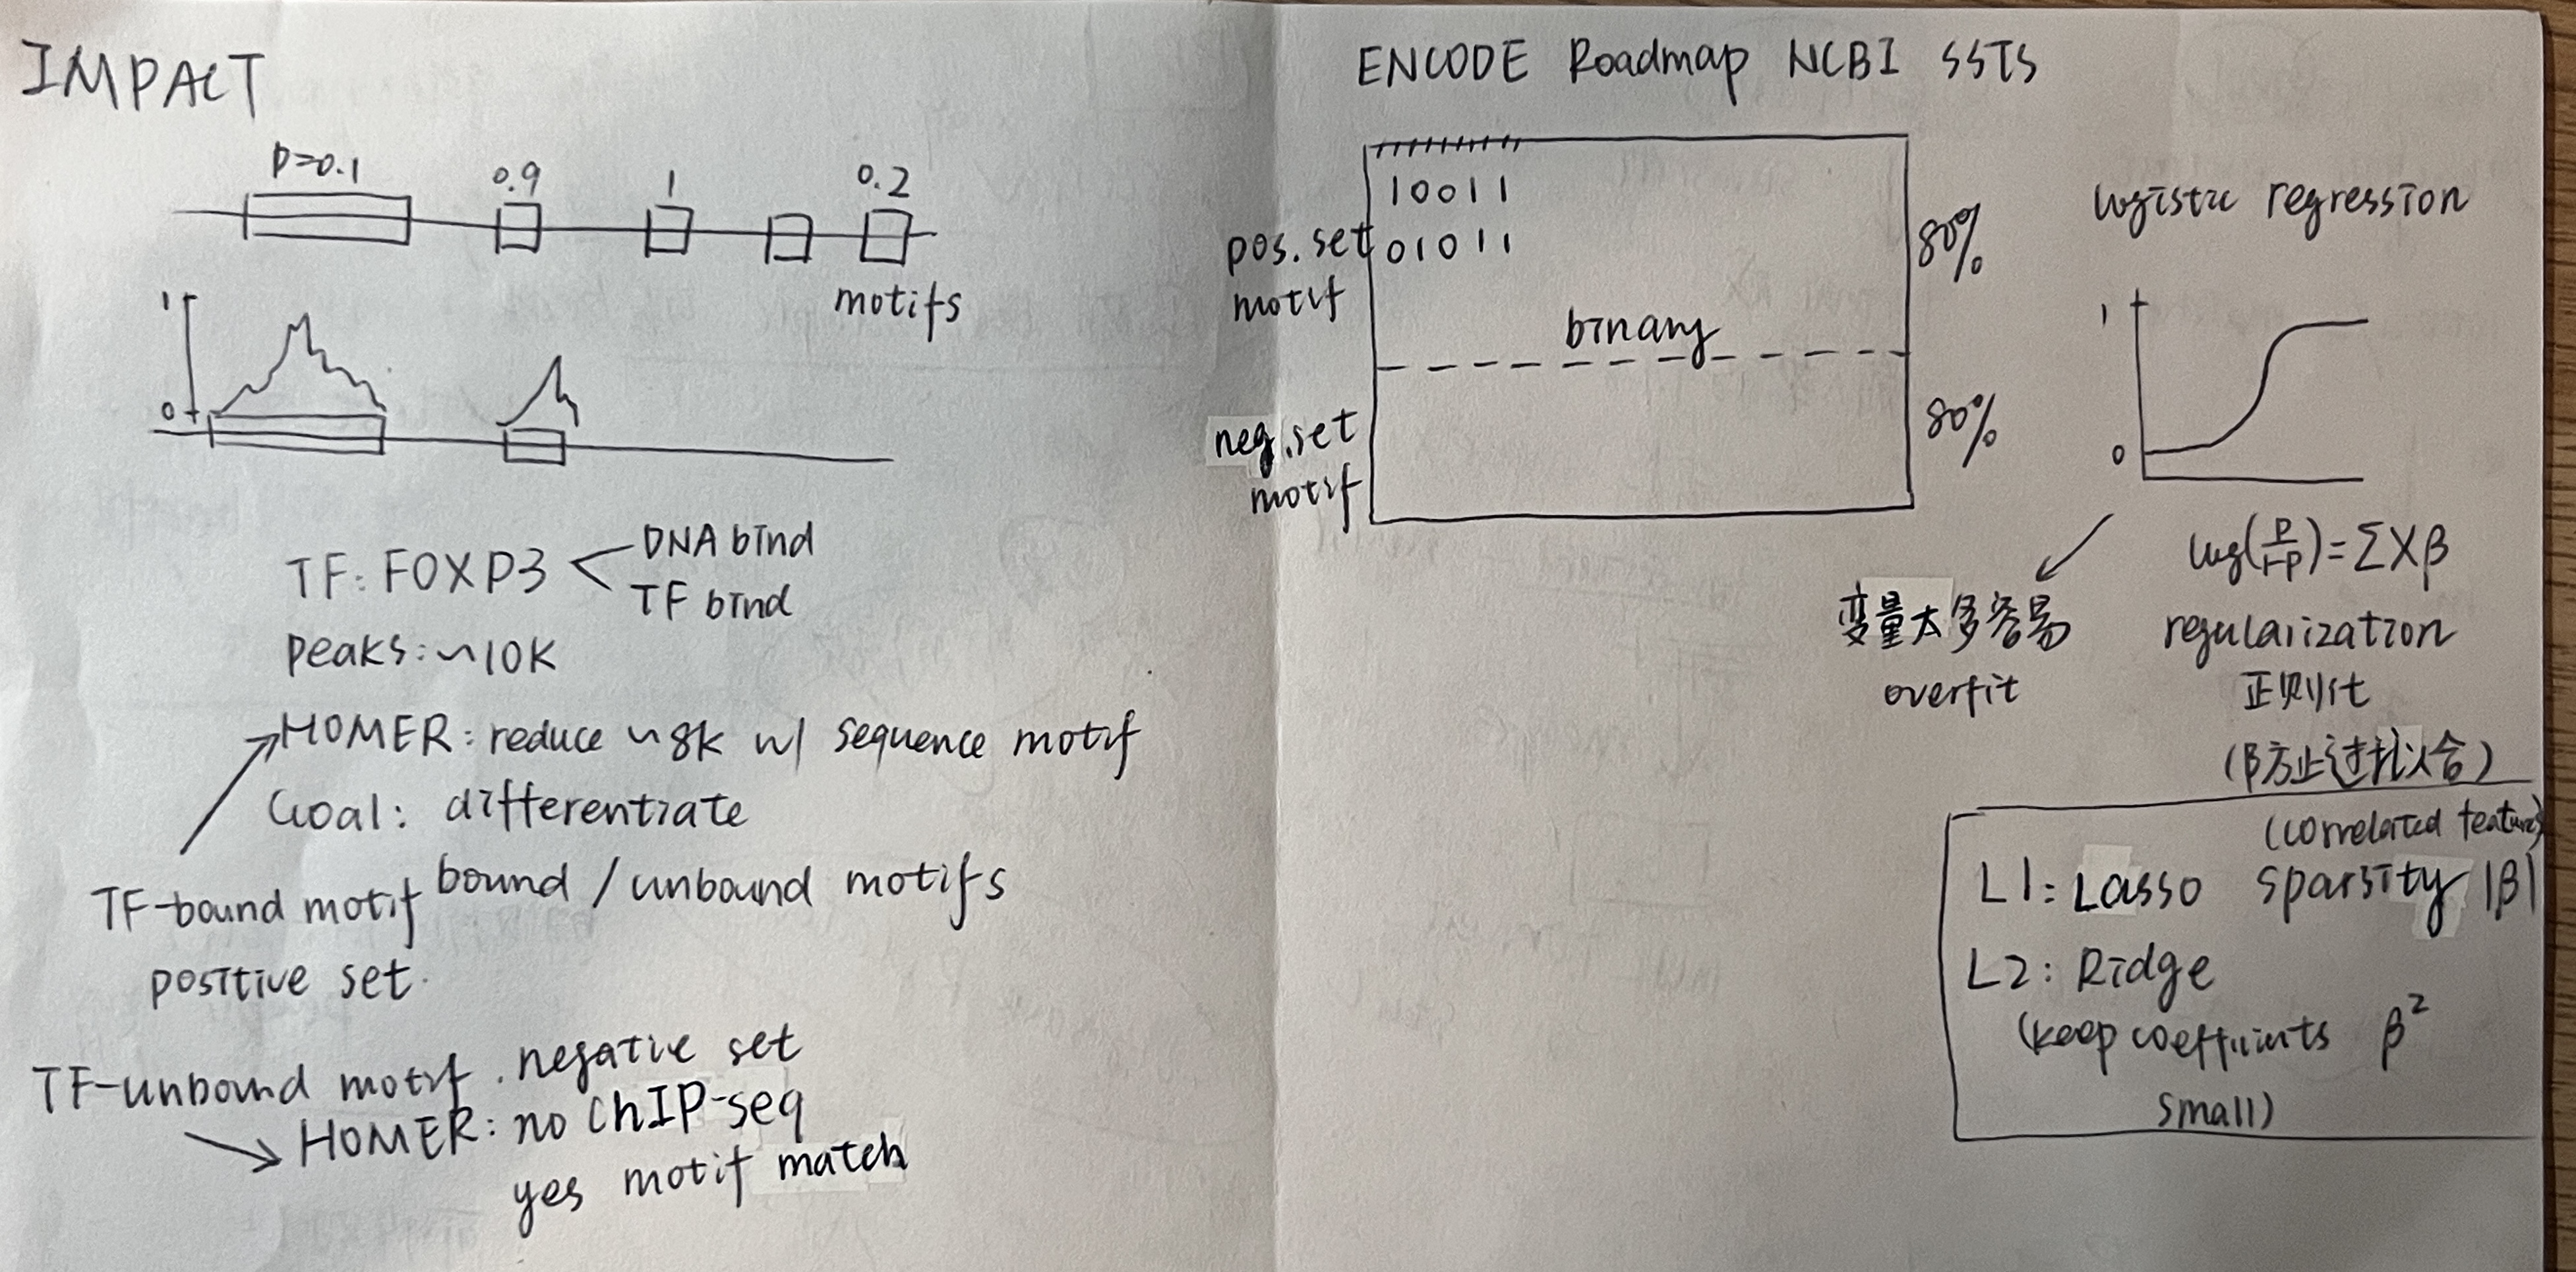 IMPACT
P=0.1 0.9 1 0.2
motifs
1
0
TF: FOXP3
DNA bind
TF bind
peaks: ~10K
HOMER: reduce ~8k w/ sequence motif
Goal: differentiate
bound / unbound motifs
TF-bound motif
positive set.
TF-unbound motif. negative set
HOMER: no ChIP-seq
yes motif match
ENCODE Roadmap NCBI SSTS
10011
01011
pos. set
motif
binary
neg. set
motif
80%
80%
logistic regression
1
0
log(p/1-p)=ΣXβ
变量太多容易
overfit
regularization
正则化
(β方止过拟合)
(correlated features)
L1: Lasso sparsity |β|
L2: Ridge
(keep coefficients β²
small)